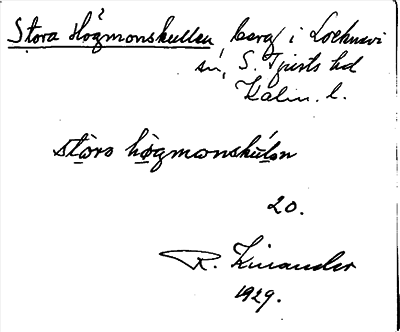 Stora Högmonskullen, berg i Locknevi
sn, S. Tjusts hd
Kalm. l.
stòra hø̀gmanskúlan
20.
R. Kinander
1929.